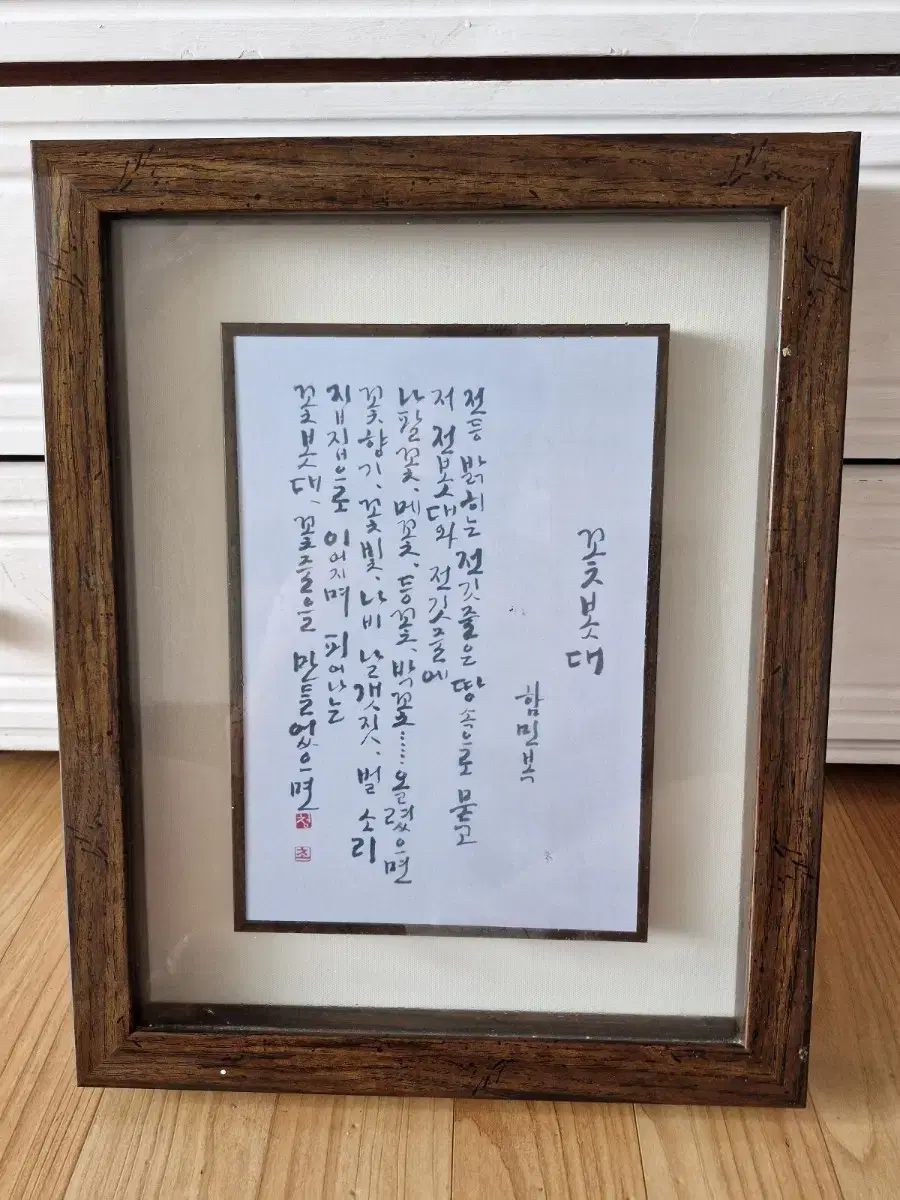 꽃봇대
함민복
전등 밝히는 전깃줄은 땅 속으로 묻고
저 전봇대와 전깃줄에
나팔꽃, 메꽃, 등꽃, 박꽃…… 올렸으면
꽃향기, 꽃빛, 나비 날갯짓, 벌 소리
집집으로 이어지며 피어나는
꽃봇대, 꽃줄을 만들었으면